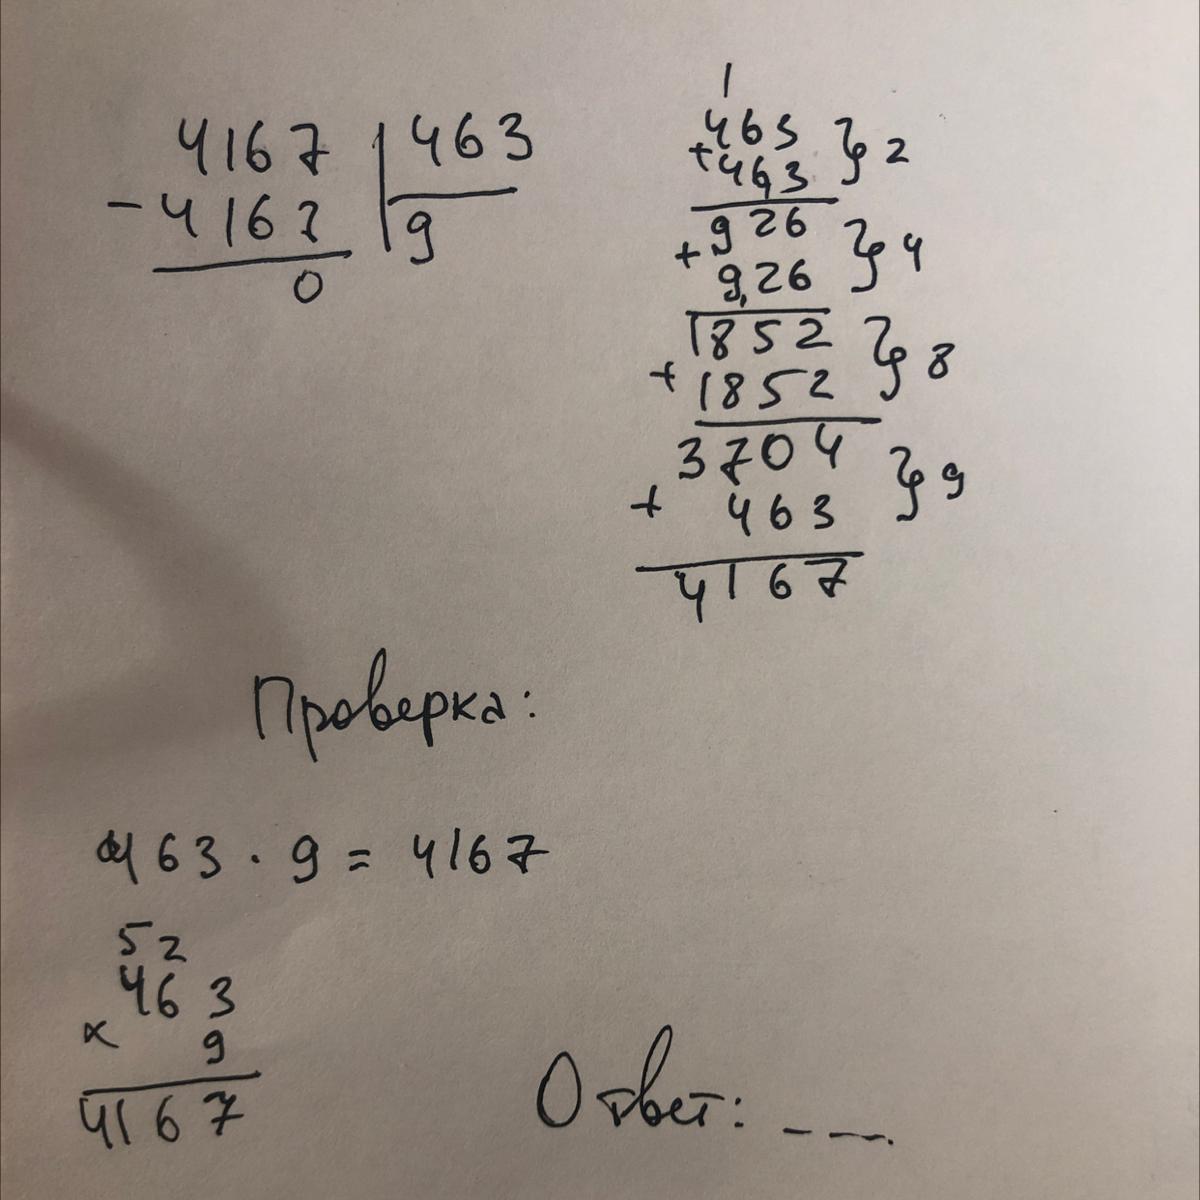 4167 | 463
- 4167 | 9
0
1
463
+ 463 } 2
926
+ 926 } 4
1852
+ 1852 } 8
3704
+ 463 } 9
4167
Проверка:
463 · 9 = 4167
52
463
× 9
4167
Ответ: _ _ _.